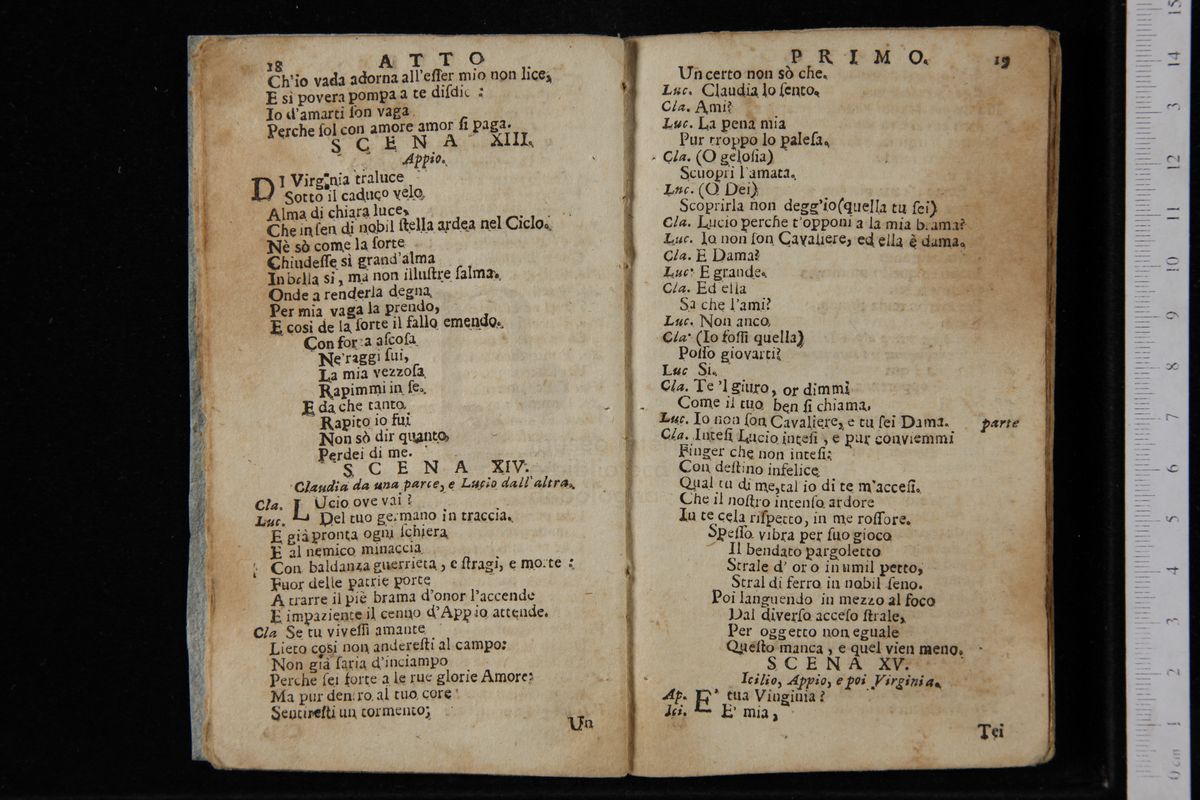 18 ATTO
Ch'io vada adorna all'eſſer mio non lice,
E si povera pompa a te diſdic :
Io d'amarti ſon vaga
Perche ſol con amore amor ſi paga.
SCENA XIII.
Appio.
DI Virginia traluce
Sotto il caduco velo
Alma di chiara luce,
Che in ſen di nobil ſtella ardea nel Cielo.
Nè sò come la ſorte
Chiudeſſe si grand'alma
In bella si, ma non illuſtre ſalma.
Onde a renderla degna
Per mia vaga la prendo,
E cosi de la ſorte il fallo emendo.
Con for a aſcoſa
Ne'raggi ſui,
La mia vezzoſa
Rapimmi in ſe.
E da che tanto
Rapito io fui
Non sò dir quanto
Perdei di me.
SCENA XIV.
Claudia da una parte, e Lucio dall'altra.
Cla. LUcio ove vai ?
Luc. Del tuo germano in traccia.
E già pronta ogni ſchiera
E al nemico minaccia
Con baldanza guerriera, e ſtragi, e morte :
Fuor delle patrie porte
A trarre il piè brama d'onor l'accende
E impaziente il cenno d'Appio attende.
Cla Se tu viveſſi amante
Lieto cosi non andereſti al campo:
Non già ſaria d'inciampo
Perche ſei forte a le tue glorie Amore:
Ma pur dentro al tuo core
Sentireſti un tormento;
Un
PRIMO. 19
Un certo non sò che.
Luc. Claudia lo ſento.
Cla. Ami?
Luc. La pena mia
Pur troppo lo paleſa.
Cla. (O geloſia)
Scuopri l'amata.
Luc. (O Dei)
Scoprirla non degg'io (quella tu ſei)
Cla. Lucio perche t'opponi a la mia brama?
Luc. Io non ſon Cavaliere, ed ella è dama.
Cla. E Dama?
Luc. E grande.
Cla. Ed ella
Sa che l'ami?
Luc. Non anco
Cla. (Io foſſi quella)
Poſſo giovarti?
Luc Si.
Cla. Te 'l giuro, or dimmi
Come il tuo ben ſi chiama.
Luc. Io non ſon Cavaliere, e tu ſei Dama. parte
Cla. Inteſi Lucio inteſi, e pur conviemmi
Finger che non inteſi:
Con deſtino infelice
Qual tu di me, tal io di te m'acceſi.
Che il noſtro intenſo ardore
In te cela riſpetto, in me roſſore.
Speſſo vibra per ſuo gioco
Il bendato pargoletto
Strale d' oro in umil petto,
Stral di ferro in nobil ſeno.
Poi languendo in mezzo al foco
Dal diverſo acceſo ſtrale,
Per oggetto non eguale
Queſto manca, e quel vien meno.
SCENA XV.
Icilio, Appio, e poi Virginia.
Ap. E' tua Vinginia ?
Ici. E' mia,
Tei